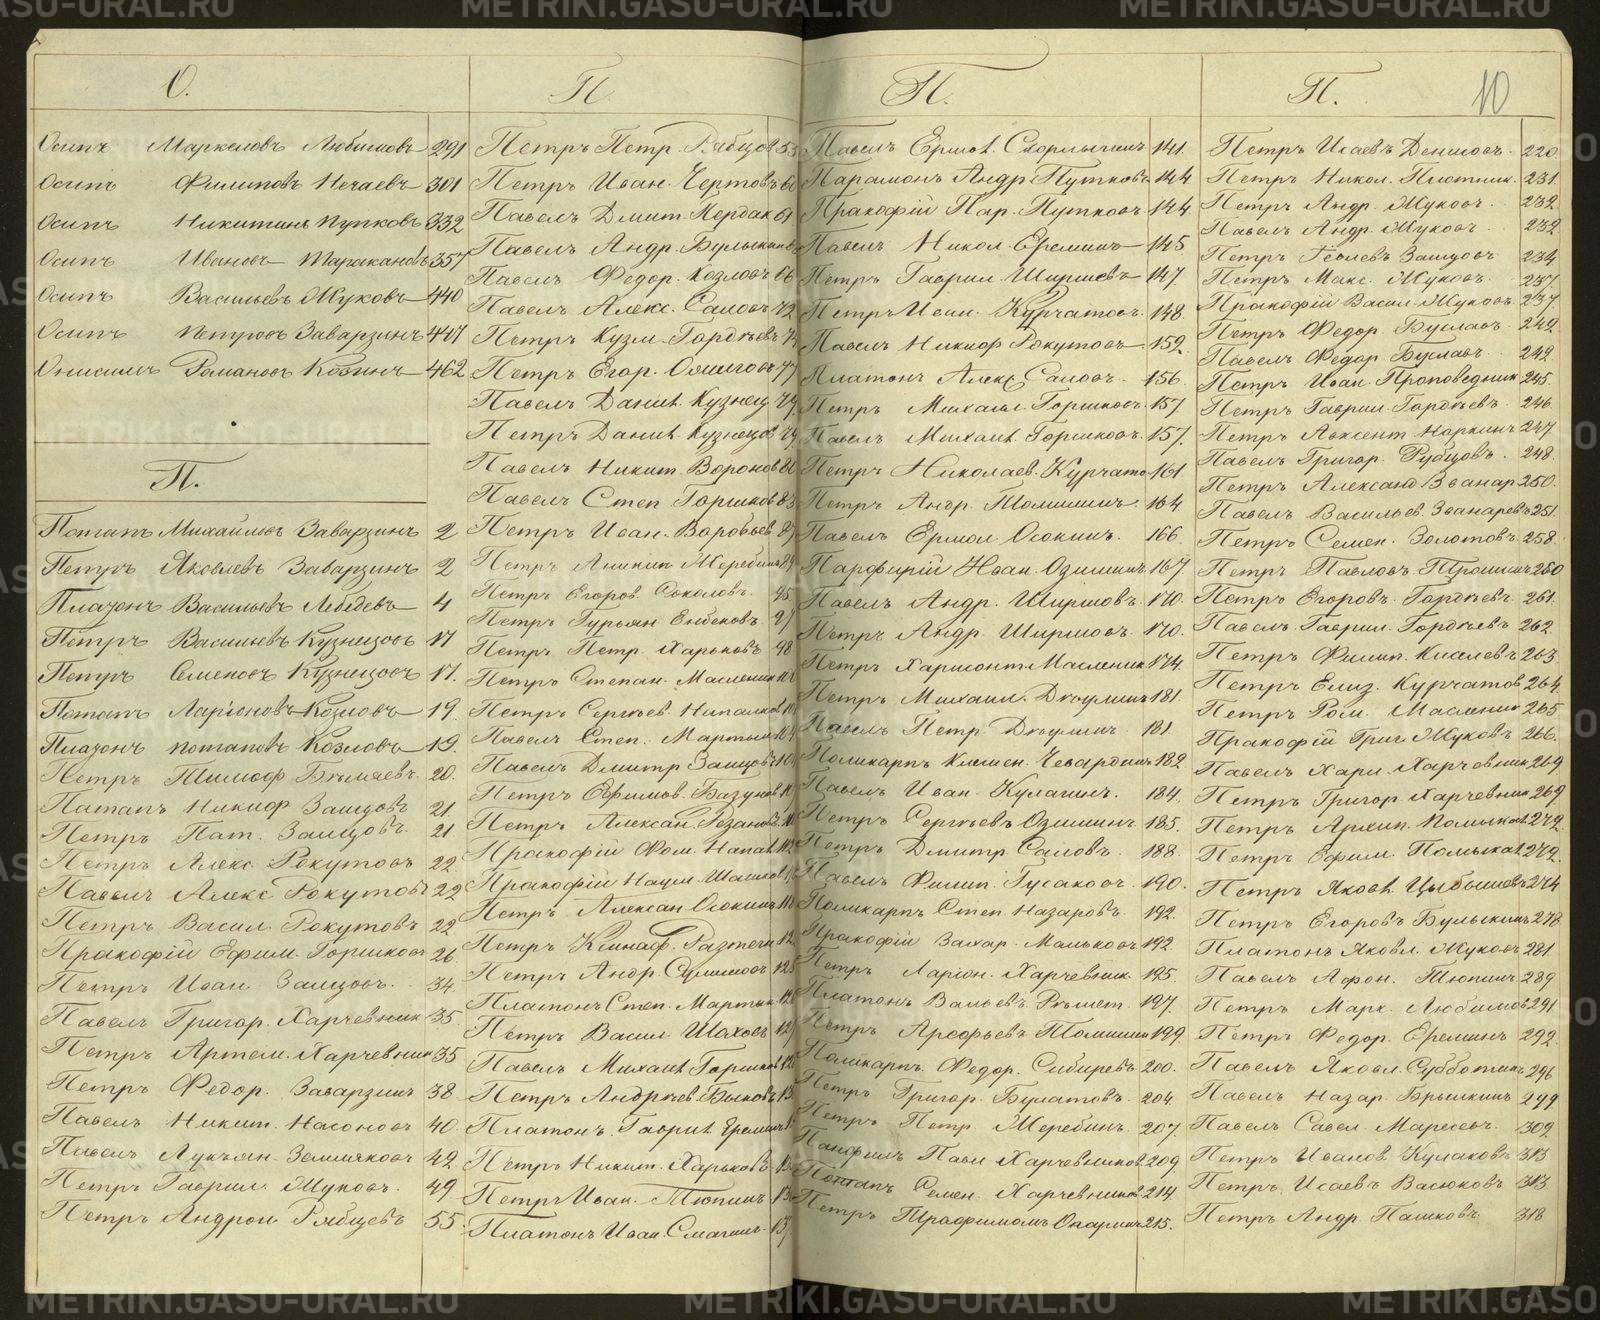 О.
Осипъ Маркеловъ Любимовъ 291
Осипъ Филиповъ Нечаевъ 301
Осипъ Никитинъ Пупковъ 332
Осипъ Ивановъ Таракановъ 357
Осипъ Васильевъ Жуковъ 440
Осипъ Петровъ Заварзинъ 447
Онисимъ Романовъ Козинъ 462
П.
Потапъ Михайловъ Заварзинъ 2
Петръ Яковлевъ Заварзинъ 2
Платонъ Васильевъ Лебедевъ 4
Петръ Васильевъ Кузнецовъ 17
Петръ Семеновъ Кузнецовъ 17.
Потапъ Ларіоновъ Козловъ 19.
Платонъ Потаповъ Козловъ 19.
Петръ Тимоф Бѣляевъ 20.
Патапъ Никиф Зайцовъ 21
Петръ Пат. Зайцовъ. 21
Петръ Алекс Рокутовъ 22
Павелъ Алекс Рокутовъ 22
Петръ Васил Рокутовъ 22
Пракофій Ефим. Горшковъ 26.
Петръ Иван Зайцовъ. 34
Павелъ Григор. Харчевник 35
Петръ Артем. Харчевник 35
Петръ Федор. Заварзинъ 38
Павелъ Никит. Насоновъ 40
Павелъ Лукъян. Земляковъ 42
Петръ Гаврил. Жуковъ. 49
Петръ Андрон. Рябцевъ 55.
П
Петръ Петр. Рябцов 55
Петръ Иван. Чертовъ 60
Павелъ Дмит. Кердак 61
Павелъ Андр. Булыкинъ
Павелъ Федор. Козловъ 66
Павелъ Алекс. Саловъ 72
Петръ Кузм. Гордѣевъ
Петръ Егор. 77
Павелъ Данил. Кузнец 79
Петръ Данил. Кузнецов 79
Павелъ Никит. Воронов 80
Павелъ Степ Горшков 83
Петръ Иван. Воробьев 87
Петръ Аникит Жеребин 89
Петръ Егоров. Соколовъ. 95
Петръ Гурьян Енбековъ 97
Петръ Петр. Харьковъ 98
Петръ Степан. Масленик
Петръ Сергѣев. Напалков
Павелъ Степ. Мартын
Павелъ Дмитр Зайцовъ
Петръ Ефимов. Базунов
Петръ Алексан.
Пракофій Фом. Напал
Пракофій Наум. Шашков
Петръ Алексан Осокинъ
Петръ
Петръ Андр.
Платонъ Степ. Мартын
Петръ Васил Шаховъ
Павелъ Михаил Горшков
Петръ Андрѣев. Быковъ
Платонъ. Гаврил Еремин
Петръ Никит. Харьковъ
Петръ Иван. Тюпинъ
Платонъ Иван. Смагинъ
П.
Павелъ Ермол. 141.
Парамонъ Андр Путковъ 144
Пракофій Пар. Путковъ 144.
Павелъ Никол. Ереминъ 145
Петръ Гаврил Ширшевъ 147.
Петръ Иван. Курчатовъ. 148
Павелъ Никиф Рокутовъ 152.
Платонъ Алекс Саловъ. 156
Петръ Михаил. Горшковъ. 157
Павелъ Михаил. Горшковъ. 157.
Петръ Николаев. Курчато 161
Петръ Андр. Томилинъ 164
Павелъ Ермол Осокинъ. 166.
Парфирій Иван. Озиминъ 167.
Павелъ Андр. Ширшовъ. 170.
Петръ Андр Ширшовъ. 170.
Петръ Харисонт. Масленик 174.
Петръ Михаил. 181.
Павелъ Петр 181
Поликарп Клемен. Чевардинъ 182
Павелъ Иван. Кулагинъ. 184.
Петръ Сергѣевъ Озиминъ 185.
Петръ Дмитр Саловъ. 188.
Павелъ Филип. Гусаковъ. 190.
Поликарпъ Степ. Назаровъ 192.
Пракофій Захар. Маньковъ 192.
Петръ Ларіон. Харчевник. 195.
Платонъ 197.
Петръ Арефьевъ Томилин 199.
Поликарп. Федор. Сибиревъ. 200.
Петръ Григор. Булатовъ. 204.
Петръ Петр. Жеребинъ. 207.
Панфилъ Павл Харчевников. 209.
Потапъ Семен. Харчевников 214.
Петръ Трофимом. Опарин 215.
П.
10
Петръ Исаевъ Денисовъ. 220
Петръ Никол. Плотник. 231.
Петръ Андр. Жуковъ. 232.
Павелъ Андр. Жуковъ. 232
Петръ Зайцовъ 234
Петръ Макс. Жуковъ. 237.
Пракофій Васил. Жуковъ. 237
Петръ Федор. Буслаевъ 242
Павелъ Федор Буслаевъ. 242.
Петръ Иван. Проповедник 245.
Петръ Гаврил. Гордѣевъ. 246
Петръ Авксент. Наркинъ 247
Павелъ Григор. Рубцовъ. 248.
Петръ Александ Званар 250.
Павелъ Васильев. Званаревъ 251
Петръ Семен. Золотовъ 258.
Петръ Павловъ. Трошинъ 260
Петръ Егоровъ. Гордѣевъ. 261.
Павелъ Гаврил. Гордѣевъ 262
Петръ Филип. Киселевъ 263.
Петръ Елиз. Курчатов 264.
Петръ Ром. Масленик 265
Пракофій Григ Жуковъ 266.
Павелъ Хари. Харчевник 269.
Петръ Григор Харчевник 269.
Петръ Архип. Помыкал 272.
Петръ Ефим. Помыкал 272.
Петръ Яковл. Цыбышевъ 274
Петръ Егоровъ Булыкинъ 278
Платонъ Яковл. Жуковъ 281.
Павелъ Афон. Тюпинъ 289
Петръ Марк. Любимов 291
Петръ Федор. Ереминъ 292
Павелъ Яковл. Субботинъ 296
Павелъ Назар. Брылкинъ 299
Павелъ Савел. Маресевъ. 309.
Петръ Иванов. Кулаковъ 313
Петръ. Исаевъ Васюковъ 313
Петръ Андр Пашковъ. 318
METRIKI.GASU-URAL.RU